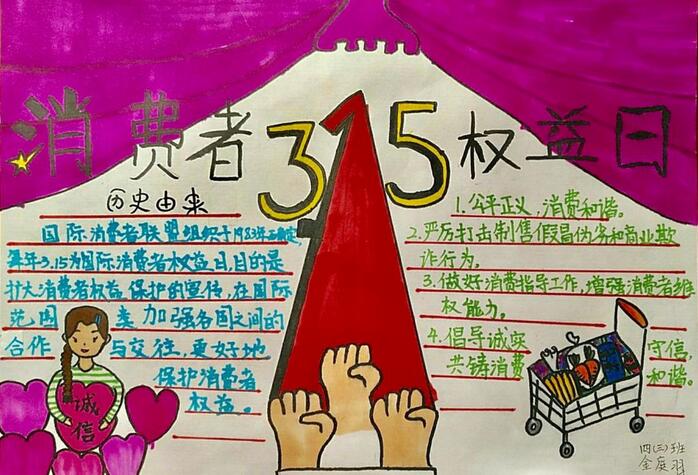 消费者315权益日
历史由来
国际消费者联盟组织于1983年
每年3.15为国际消费者权益日,目的是
扩大消费者权益保护的宣传,在国际
范围 类加强各国之间的
合作 与交往,更好地
保护消费者
权益。
诚
信
1.公平正义,消费和谐。
2.严厉打击制售假冒伪劣和商业欺
诈行为。
3.做好消费指导工作,增强消费者维
权能力。
4.倡导诚实 守信,
共铸消费 和谐。
四(三)班
金庭羽